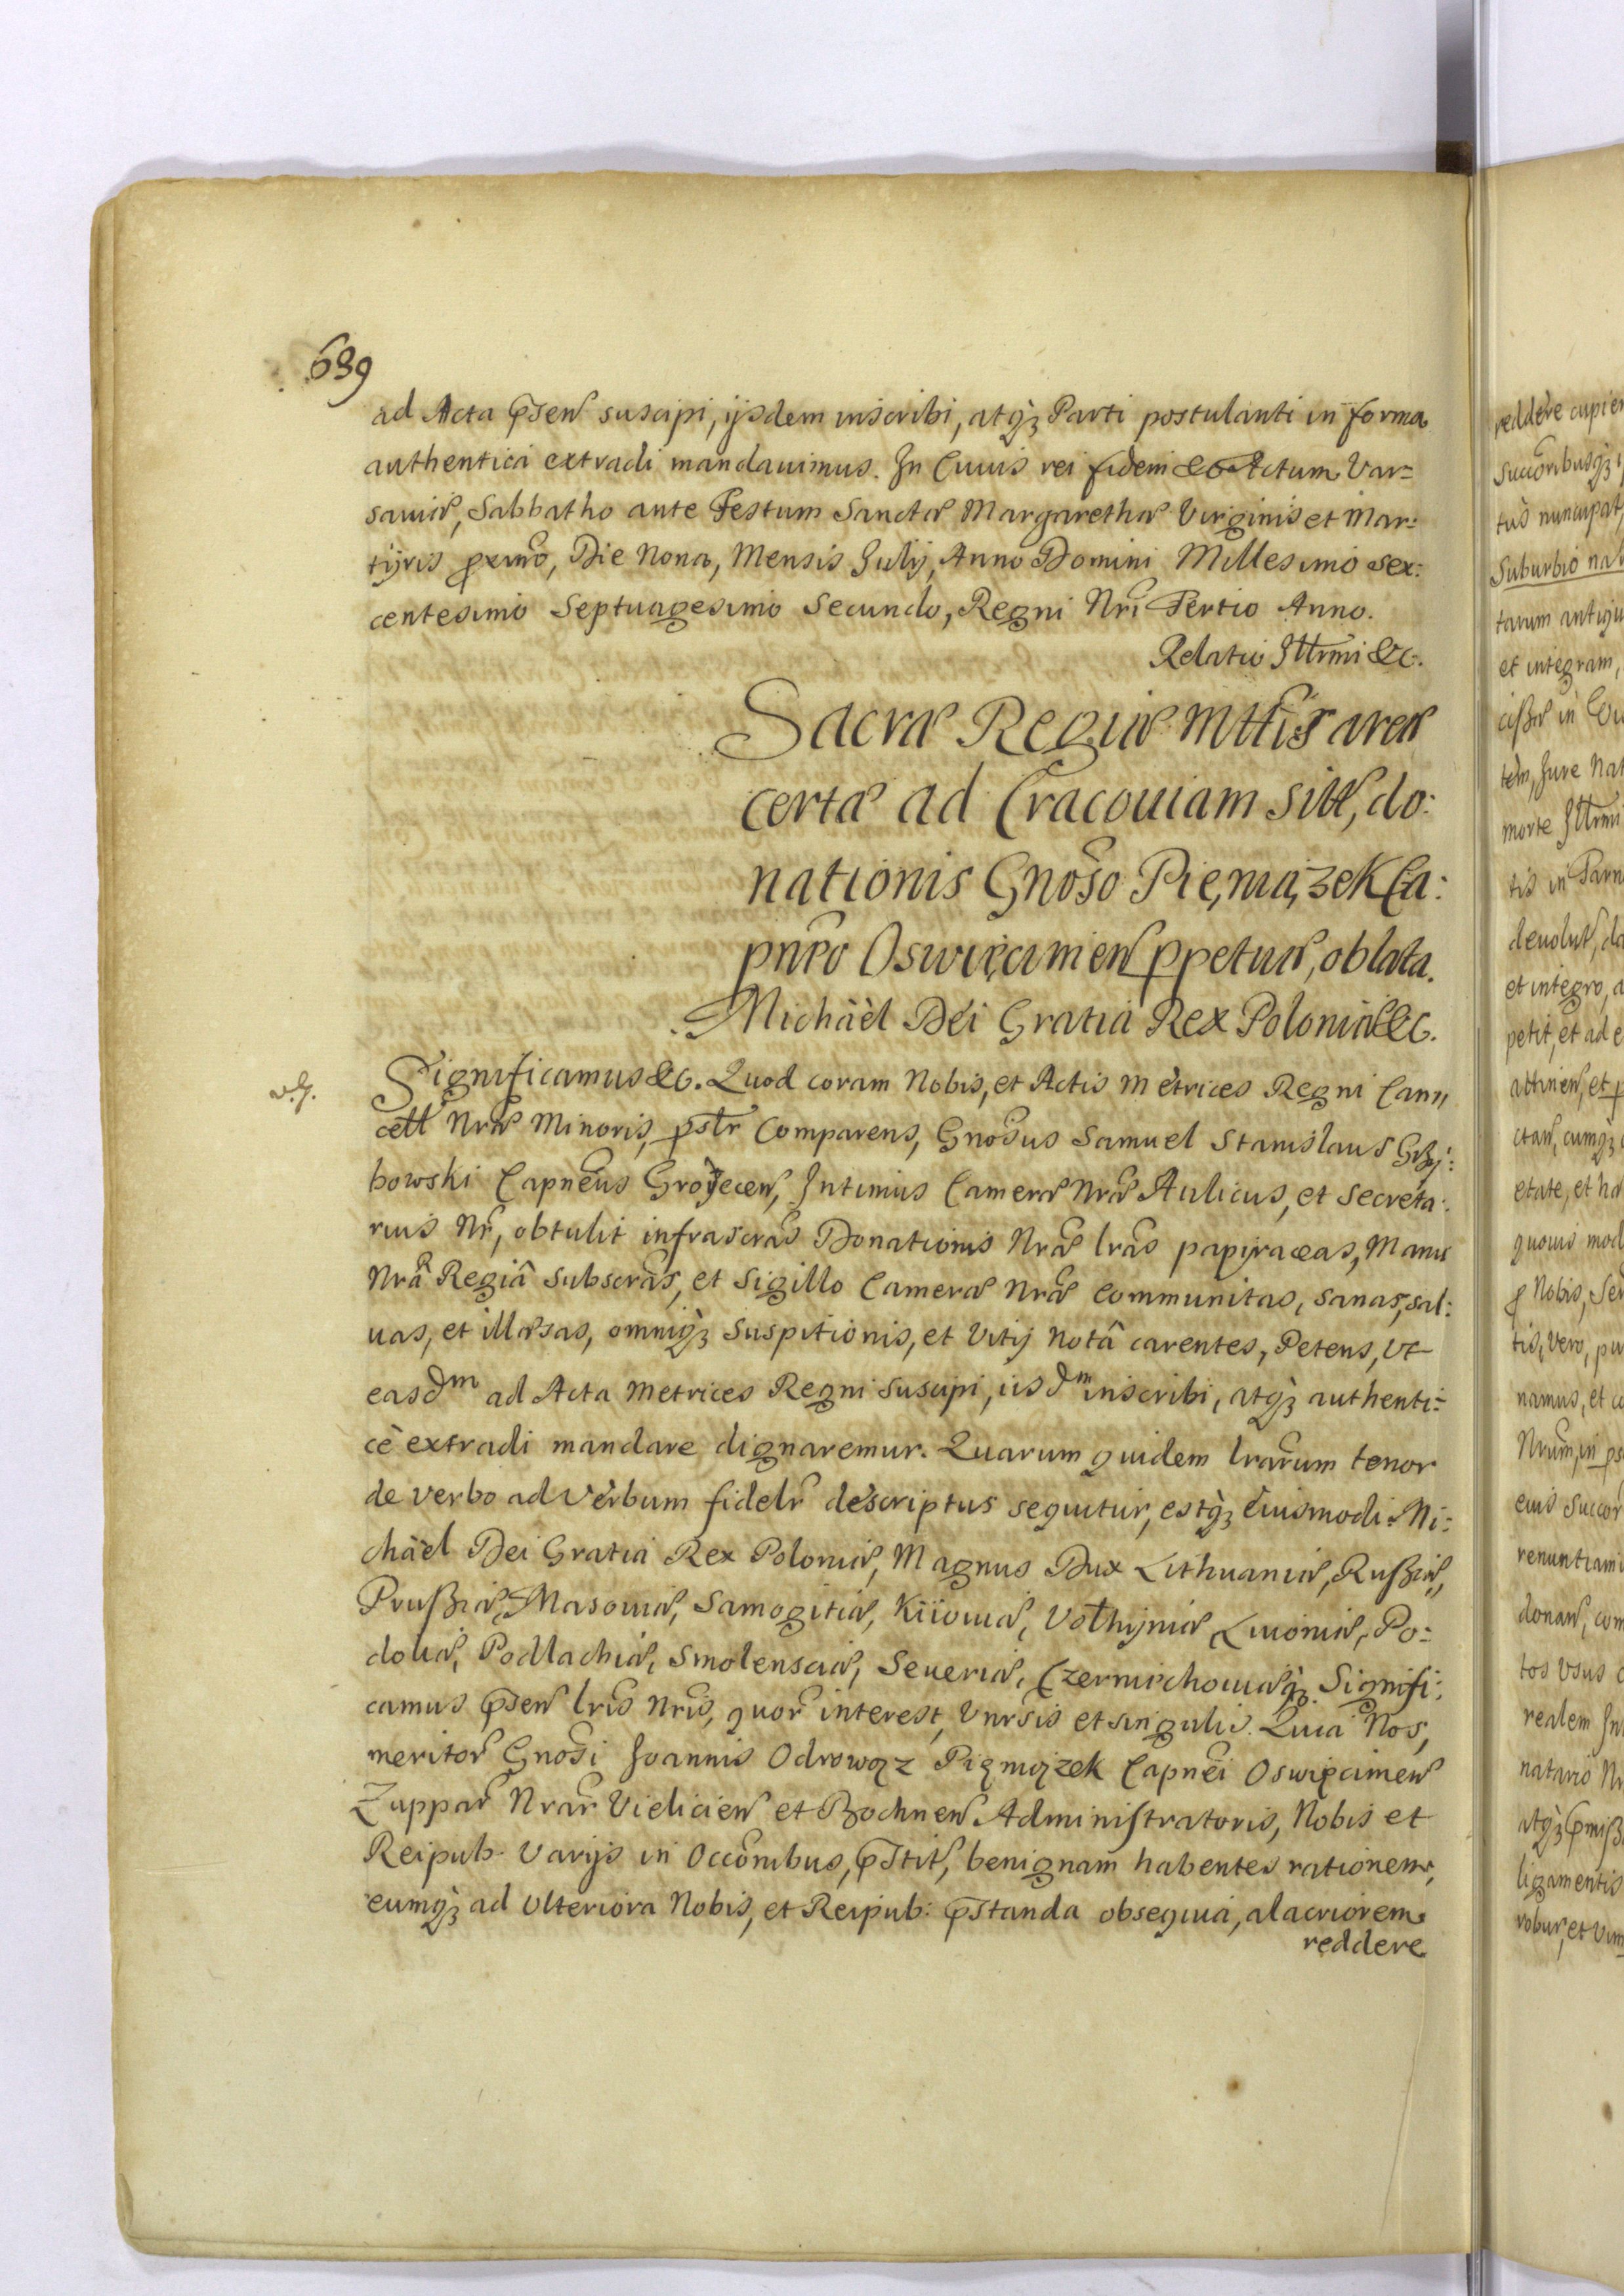 639
ad Acta p̃sen suscipi, ijsdem inscribi, atq̀ꝫ Parti postulanti in forma
authentica extradi mandauimus. In Cuius rei fidem &c Actum Var=
sauiæ, Sabbatho ante Festum Sanctæ Margarethæ Virginis et Mar:
tÿris proximo, Die Nona, Mensis Julij, Anno Domini Millesimo sex:
centesimo Septuagesimo Secundo, Regni Nrĩ Tertio Anno.
Relatio Illrmi &c.
Sacræ Regiæ Mttis areæ
certæ ad Cracouiam sitæ, do:
nationis Gnoso Pie,nia,zek Ca:
pneo Oswięcimen ppetuæ, oblata.
Michàèl Dei Gratia Rex Poloniæ &c.
v. g.
Significamus &c. Quod coram Nobis, et Actis Metrices Regni Can,,
cell Nræ Minoris, pslr Comparens, Gnosus Samuel Stanislaus Grzy:
bowski Capneus Grojecen, Intimus Cameræ Nræ Aulicus, et Secreta:
rius Nr, obtulit infrascras Donationis Nræ lras papijraceas, Manu
Nrâ Regiâ Subscras, et Sigillo Cameræ Nræ communitas, sanas, sal:
uas, et illæsas, omniq̀ꝫ Suspitionis, et Vitij notâ carentes, Petens, Vt
easdm ad Acta Metrices Regni Suscipi, iisdm inscribi, atq̀ꝫ authenti=
cè extradi mandare dignaremur. Quarum quidem lrarum tenor
de verbo ad Verbum fidelr descriptus sequitur, estq̀ꝫ eiusmodi. Mi:
chàèl Dei Gratia Rex Poloniæ, Magnus Dux Lithuaniæ, Rußiæ,
Prußiæ, Masouiæ, Samogitiæ, Kiïouiæ, Volhijniæ, Liuoniæ, Po:
doliæ, Podlachiæ, Smolensciæ, Seueriæ, Czerniechouiæq̀ꝫ. Signifi:
camus p̃sen lris Nris, quor interest, Vnrsis et singulis. Quia Nos,
meritor Gnosi Joannis Odrowąz Pięniązek Capnei Oswięcimen
Zuppar Nrar Vielicien et Bochnen Administratoris, Nobis et
Reipub. Varijs in Occonibus, p̃stit, benignam habentes rationem,
eumq̀ꝫ ad Vlteriora Nobis, et Reipub: p̃standa obsequia, alacriorem
reddere
reddere cupien
Succoribusq̀ꝫ
tus nuncupat,
Suburbio nat
tarum antiqu
et integram,
cißæ in
tem, Jure Nat
morte Illrmi
tis in Parn
deuolut, da
et integro, a
petit, et ad e
attinen, et p
ctan, cumq̀ꝫ
etate, et ha
quouis mod
p Nobis, Ser
tis, Vero, pu
namus, et co
Nrum, in ps
eius Succor
renuntiam
donan, com
tos Vsus
realem In
natario Nr
atq̀ꝫ p̃miß
ligamentis
robur, et Vim